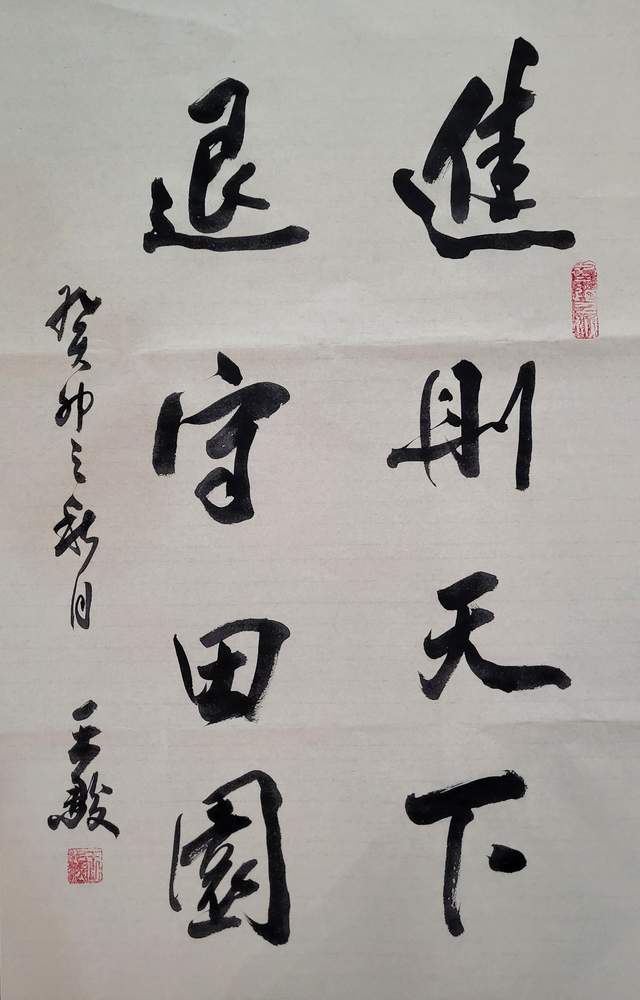 進則天下
退守田園
癸卯之秋月 王毅